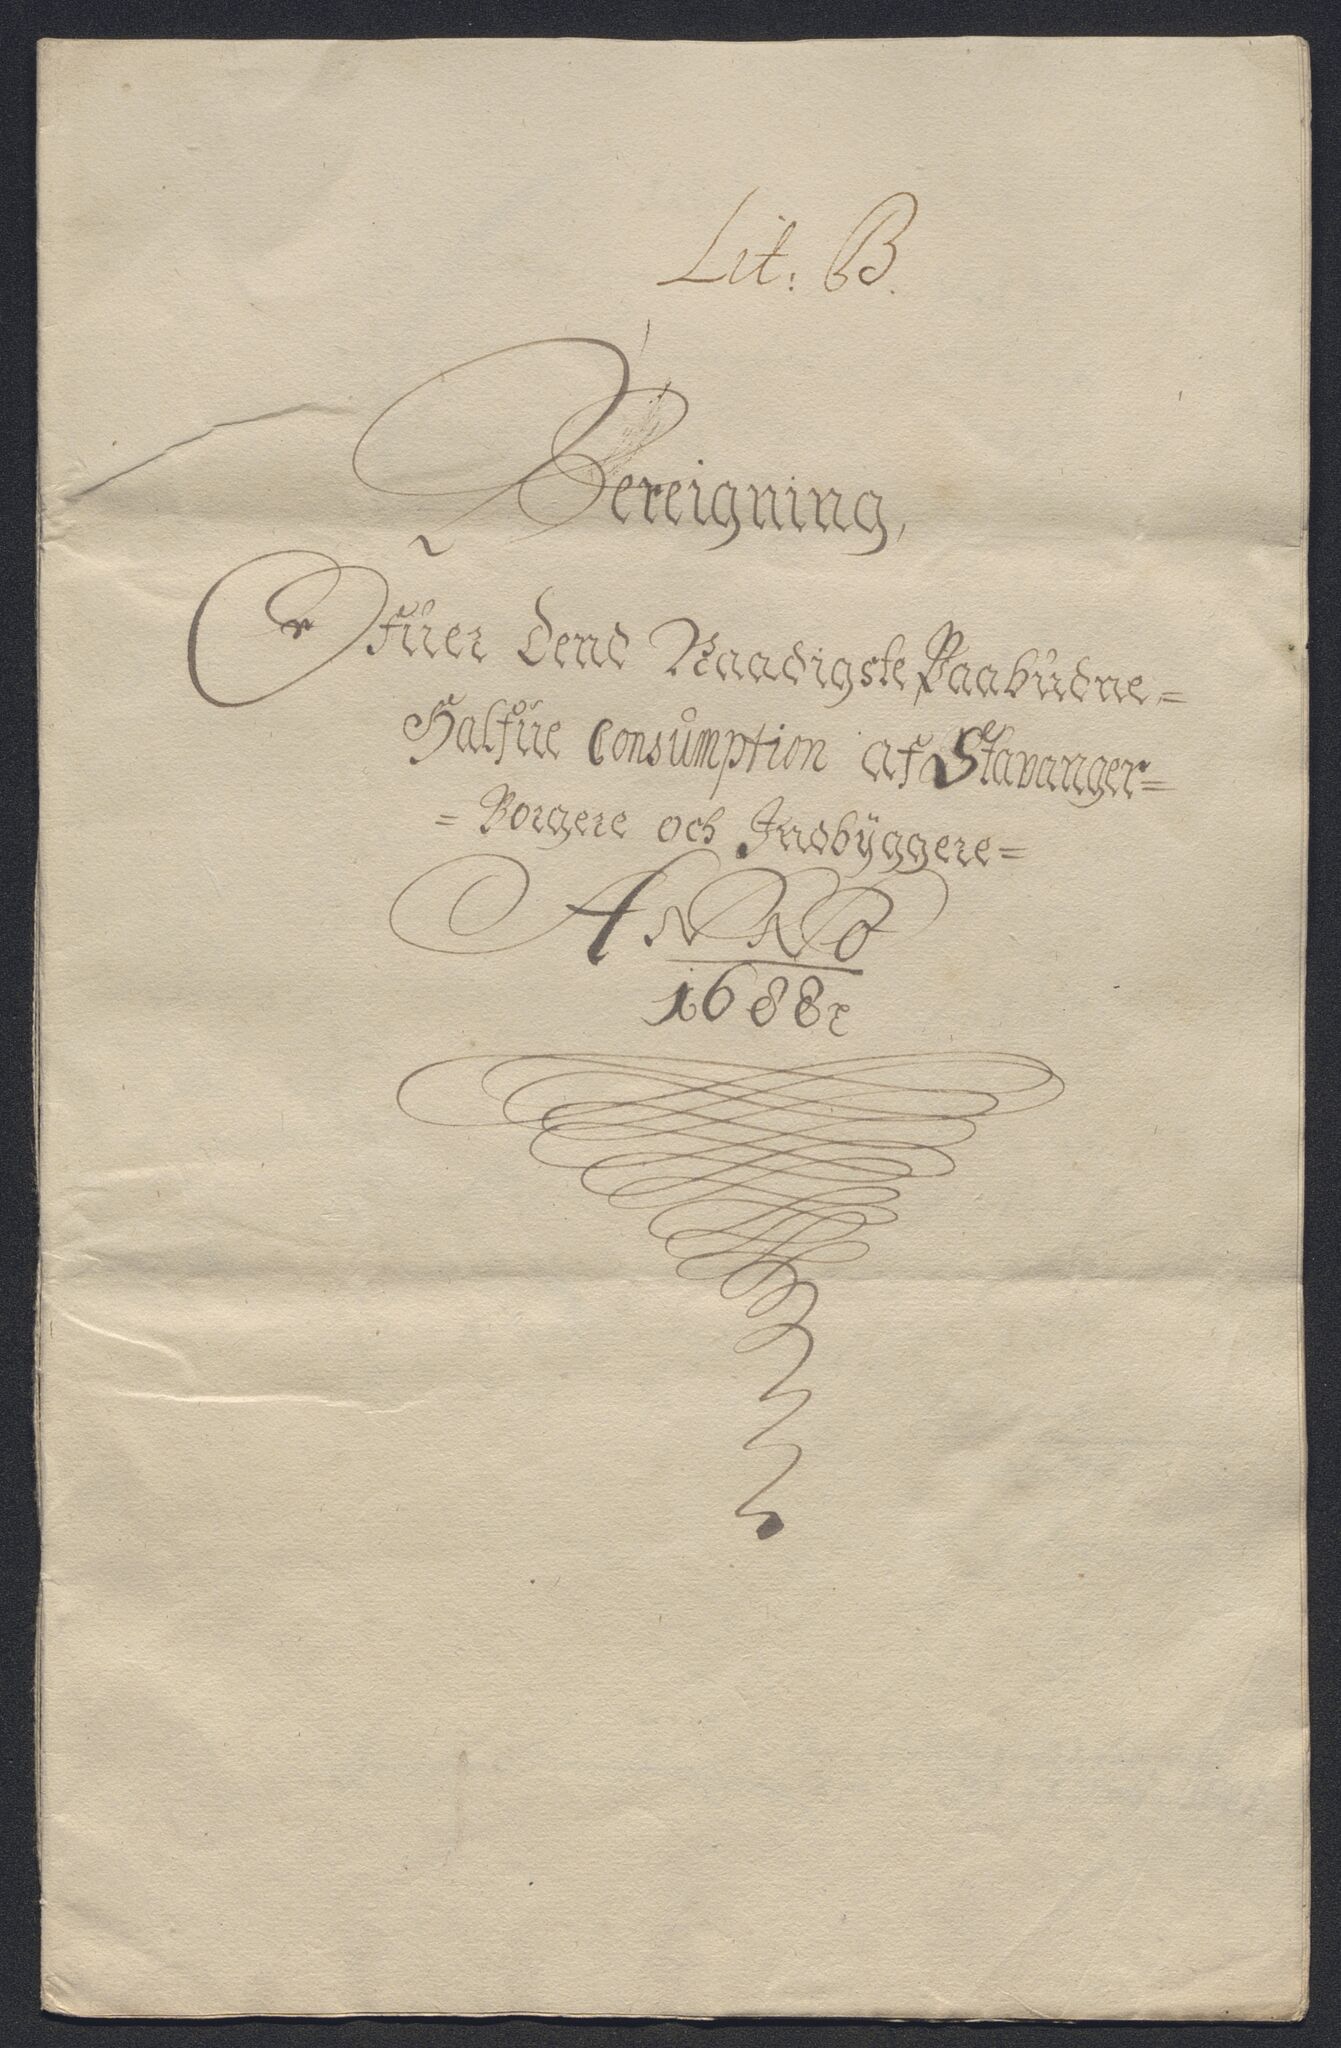 Lit: B.
Bereigning,
Ofuer Dend Naadigste Paabudne=
Halfue Consumption af Stavanger=
= Borgere och Indbÿggere=
ANNO
1688